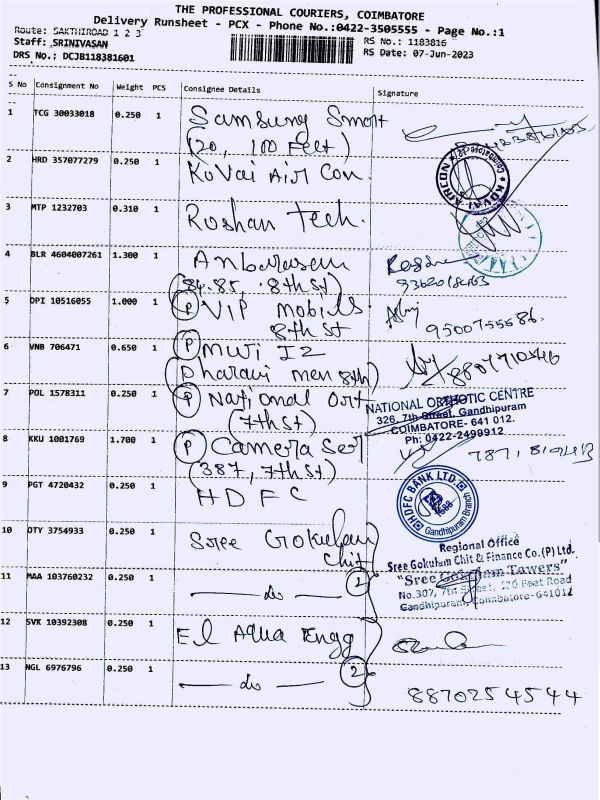 THE PROFESSIONAL COURIERS, COIMBATORE
Delivery Runsheet - PCX - Phone No.:0422-3505555 - Page No.:1
Route: SAKTHIROAD 1 2 3
Staff: SRINIVASAN
DRS No.: DCJB118381601
RS No.: 1183816
RS Date: 07-Jun-2023
S No Consignment No Weight PCS Consignee Details Signature
1 TCG 30033018 0.250 1 Samsung Smart
(20, 100 Feet)
2 HRD 357077279 0.250 1 KoVai Air Con.
KOVAI AIRCON
3 MTP 1232703 0.310 1 Roshan Tech.
4 BLR 4604007261 1.300 1 Anbarasan
(84.85, 8th St)
5 DPI 10516055 1.000 1 (P) VIP Mobiles
8th St 9500755586.
6 VNB 706471 0.650 1 (P)
8807710546
7 POL 1578311 0.250 1 (P) National Ort
(7th St)
NATIONAL ORTHOTIC CENTRE
326, 7th Street, Gandhipuram
COIMBATORE- 641 012.
Ph: 0422-2499912
8 KKU 1001769 1.700 1 (P) Camera Ser
(387, 7th St)
9 PGT 4720432 0.250 1 HDFC
HDFC BANK LTD.
Gandhipuram Branch
10 OTY 3754933 0.250 1 Sree Gokulam
Chit
Regional Office
Sree Gokulam Chit & Finance Co.(P) Ltd.
"Sree Gokulam Towers"
No.307, 7th Street, 100 Feet Road
Gandhipuram, Coimbatore-641012
11 MAA 103760232 0.250 1 — do — 2
12 SVK 10392308 0.250 1 El Aqua Engg
13 NGL 6976796 0.250 1 — do — 2
8870254544